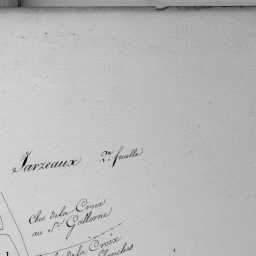 Jarzeaux 2me feuille
Clos de la Croix
au Sr Gallerne
de la Croix